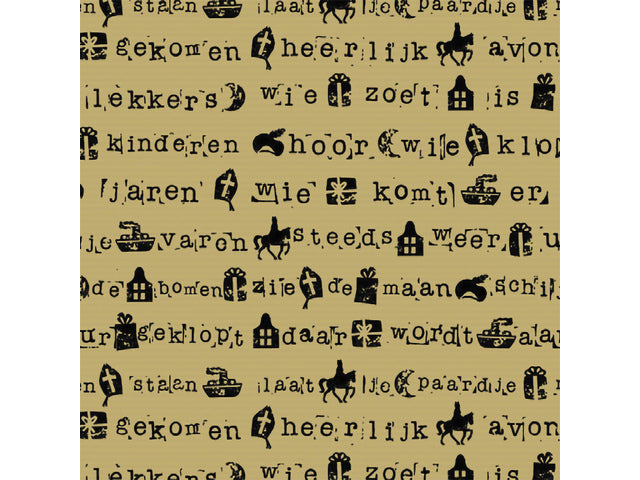 en staan laat je paardje
gekomen heerlijk avon
lekkers wie zoet is
kinderen hoor wie klo
jaren wie komt er
je varen steeds weer u
de bomen zie de maan schij
ur geklopt daar wordt aa
en staan laat je paardje
gekomen heerlijk avon
lekkers wie zoet is